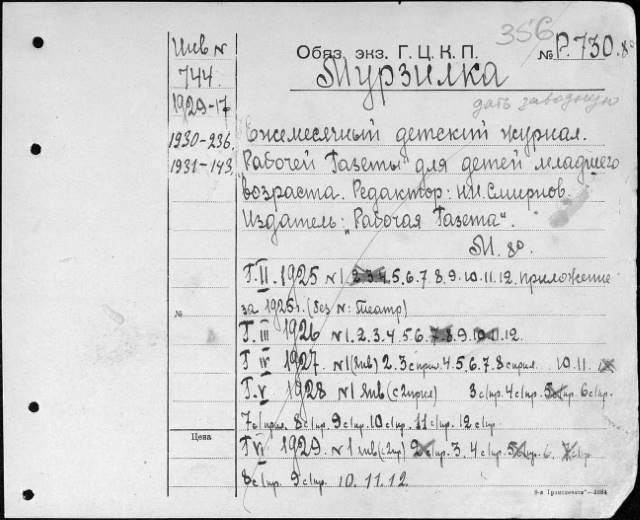 356
Обяз. экз. Г. Ц. К. П.
№ Р. 730. 8°
Мурзилка
дать заводную
Инв №
744.
1929-17
1930-236
1931-143
Ежемесячный детский журнал.
"Рабочей Газеты" для детей младшего
возраста. Редактор: Н.И. Смирнов.
Издатель: "Рабочая Газета".
М. 8°.
Г. II. 1925 №1. 2. 3. 4. 5. 6. 7. 8. 9. 10. 11. 12. приложение
за 1925г. (без №: Театр)
№
Г. III 1926 №1. 2. 3. 4. 5. 6. 7. 8. 9. 10. 11. 12.
Г. IV 1927 №1 (янв) 2. 3 с прил. 4. 5. 6. 7. 8 с прил. 10. 11. 12
Г. V 1928 №1 янв (с 2 прил) 3 с/пр. 4 с/пр. 5 6 с/пр.
7 с/прил. 8 с/пр. 9 с/пр. 10 с/пр. 11 с/пр. 12 с/пр
Цена
Г VI 1929. №1 янв (с 2 пр) 2 с/пр. 3. 4 с/пр. 5 с/пр. 6. 7 с/пр
8 с/пр. 9 с/пр. 10. 11. 12.